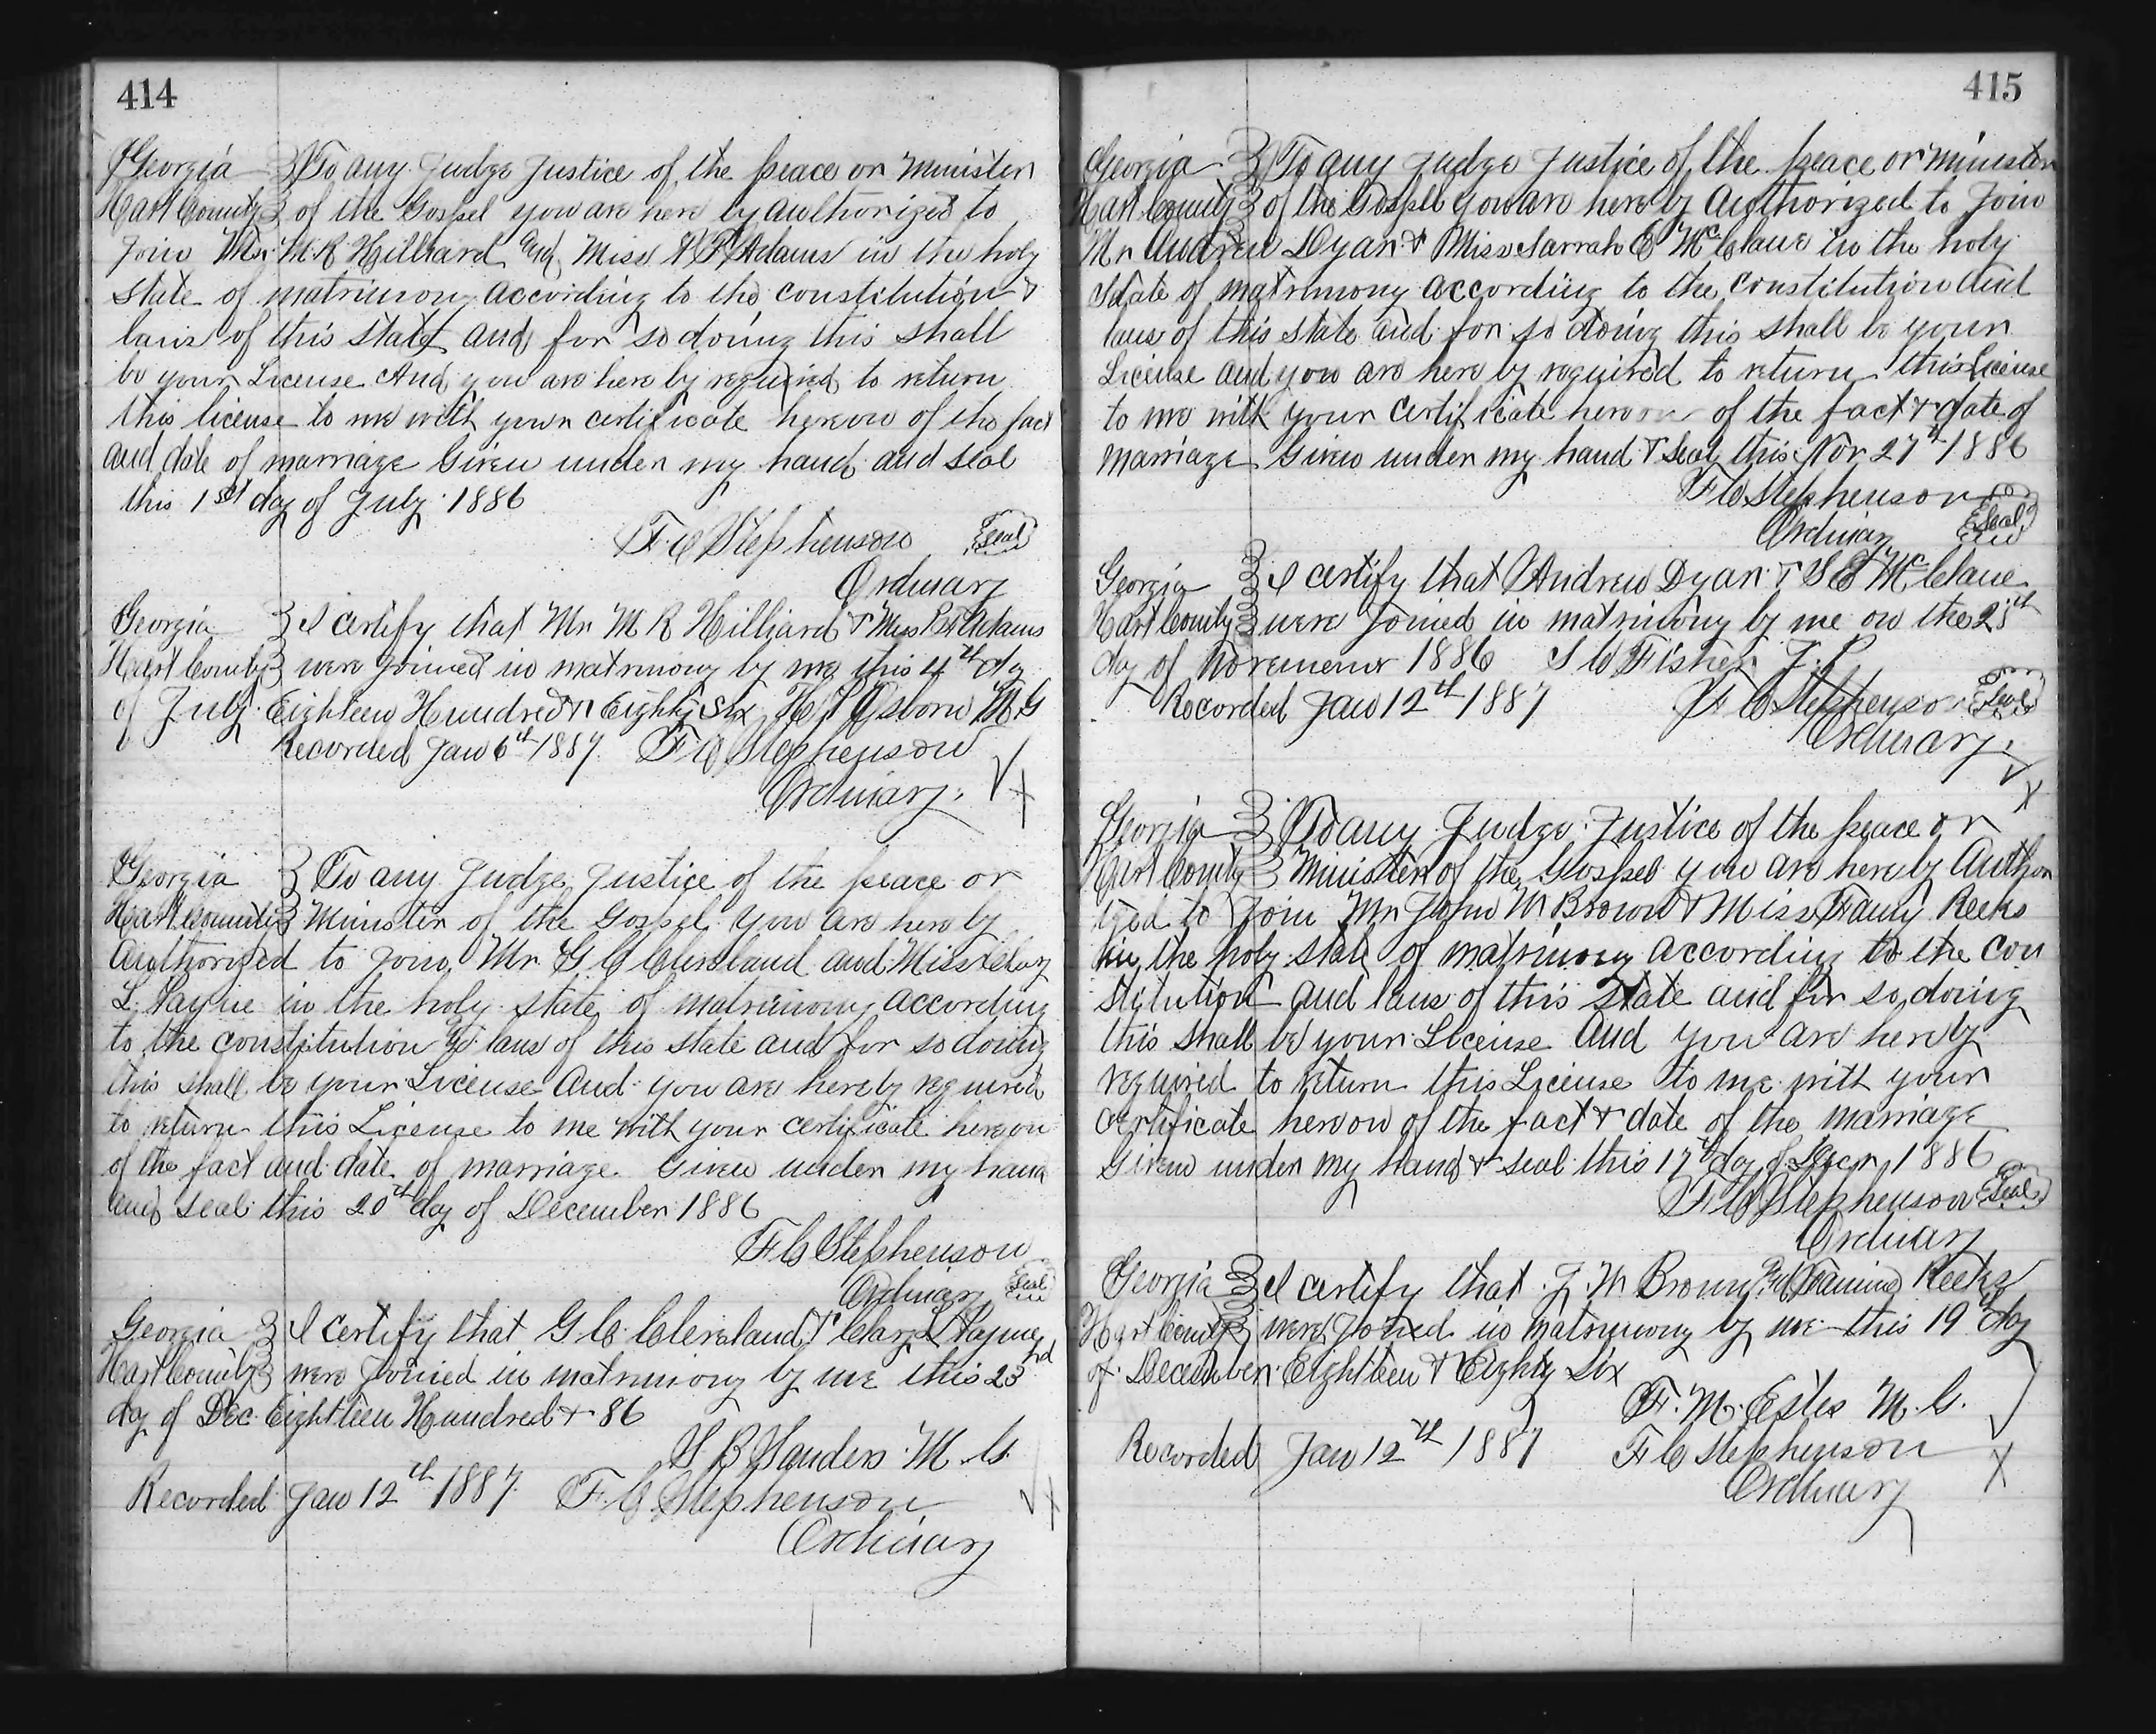 414
Georgia To any Judge Justice of the peace or Minister
Hart County of the Gospel you are here by authorized to
Join Mr. M. R. Hilliard and Miss Adams in the holy
State of matrimony according to the constitution &
laws of this state and for so doing this shall
be your License And you are here by required to return
this license to me with your certificate hereon of the fact
and date of marriage Given under my hand and seal
this 1st day of July 1886
F. C Stephenson Seal
Ordinary
Georgia I certify that Mr M R Hilliard & Miss Adams
Hart County were joined in matrimony by me this 4th day
of July Eighteen Hundred & Eighty Six Osborn M G
Recorded Jan 6th 1887. F C Stephenson
Ordinary.
Georgia To any Judge, Justice of the peace or
Hart County Minister of the Gospel you are here by
Authorized to join Mr. G. C Cleveland and Miss Clary
L. Payne in the holy state of matrimony according
to the constitution & laws of this state and for so doing
this shall be your License And you are hereby required
to return this License to me with your certificate hereon
of the fact and date of marriage. Given under my hand
and seal this 20th day of December 1886
F C Stephenson
Ordinary Seal
Georgia I certify that G C. Cleveland & Clary L Payne
Hart County were joined in matrimony by me this 23rd
day of Dec Eighteen Hundred & 86
S. B. Sanders. M. G.
Recorded Jan 12th 1887. F. C Stephenson
Ordinary
415
Georgia To any Judge Justice of the peace or minister
Hart County of the Gospell you are here by Authorized to Join
Mr Andrew Dyar & Miss Sarrah E McClane in the holy
State of matrimony according to the constitution and
laws of this state and for so doing this shall be your
License and you are here by required to return this License
to me with your certificate hereon of the fact & date of
marriage Given under my hand & seal this Nov 27th 1886
F C Stephenson
Ordinary Seal
Georgia I certify that Andrew Dyar & S E McClane
Hart County were joined in matrimony by me on the 28th
day of November 1886 S W Fisher J. P.
Recorded Jan 12th 1887 F C Stephenson Seal
Ordinary.
Georgia To any Judge Justice of the peace or
Hart County Minister of the Gospel you are hereby Author
ized to Join Mr John M Brown & Miss Fanny Reeks
in the holy state of matrimony according to the con
stitution and laws of this State and for so doing
this shall be your License And you are hereby
required to return this License to me with your
certificate hereon of the fact & date of the marriage
Given under my hand & seal this 17th day of Decr, 1886
F C Stephenson Seal
Ordinary
Georgia I certify that J. M Brown and Fannie Reeks
Hart County were joined in matrimony by me this 19th day
of December Eighteen & Eighty Six
F. M. Estes M. G.
Recorded Jan 12th 1887 F C Stephenson
Ordinary